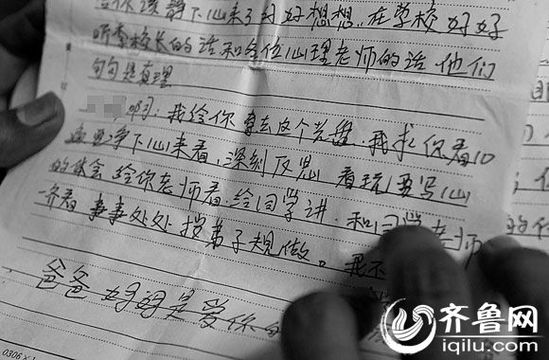 你该静下心来了好好想想，在学校好好
听李校长的话和各位心理老师的话，他们
句句是真理
啊：我给你寄去这个光盘，我求你看10
遍静下心来看，深刻反思，看玩要写心
的体会给你老师看，给同学讲，和同学老师
一齐看，事事处处按弟子规做。我不
爸爸妈妈是爱你的
0306
齐鲁网
iqilu.com